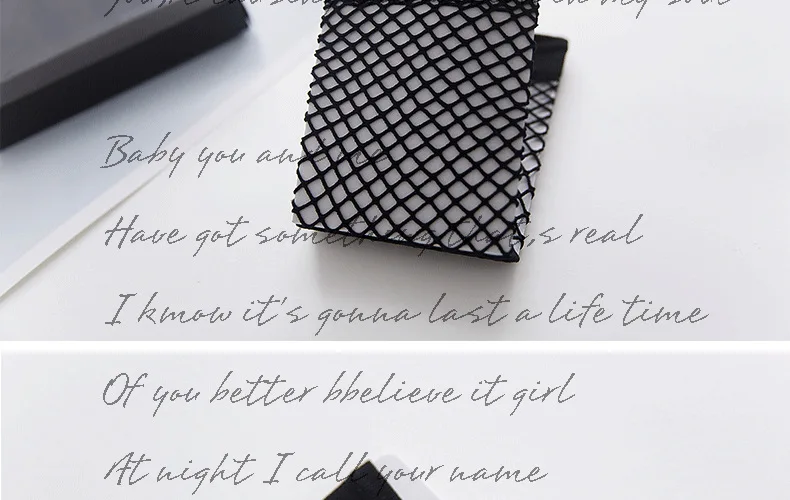 in my soul
Baby you and me
Have got something that,s real
I kmow it's gonna last a life time
Of you better bbelieve it girl
At night I call your name